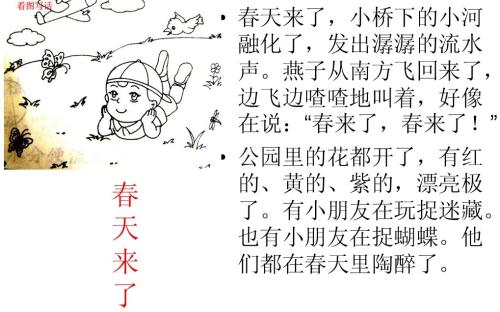 看图写话
春天来了
• 春天来了，小桥下的小河
融化了，发出潺潺的流水
声。燕子从南方飞回来了，
边飞边喳喳地叫着，好像
在说：“春来了，春来了！”
• 公园里的花都开了，有红
的、黄的、紫的，漂亮极
了。有小朋友在玩捉迷藏。
也有小朋友在捉蝴蝶。他
们都在春天里陶醉了。